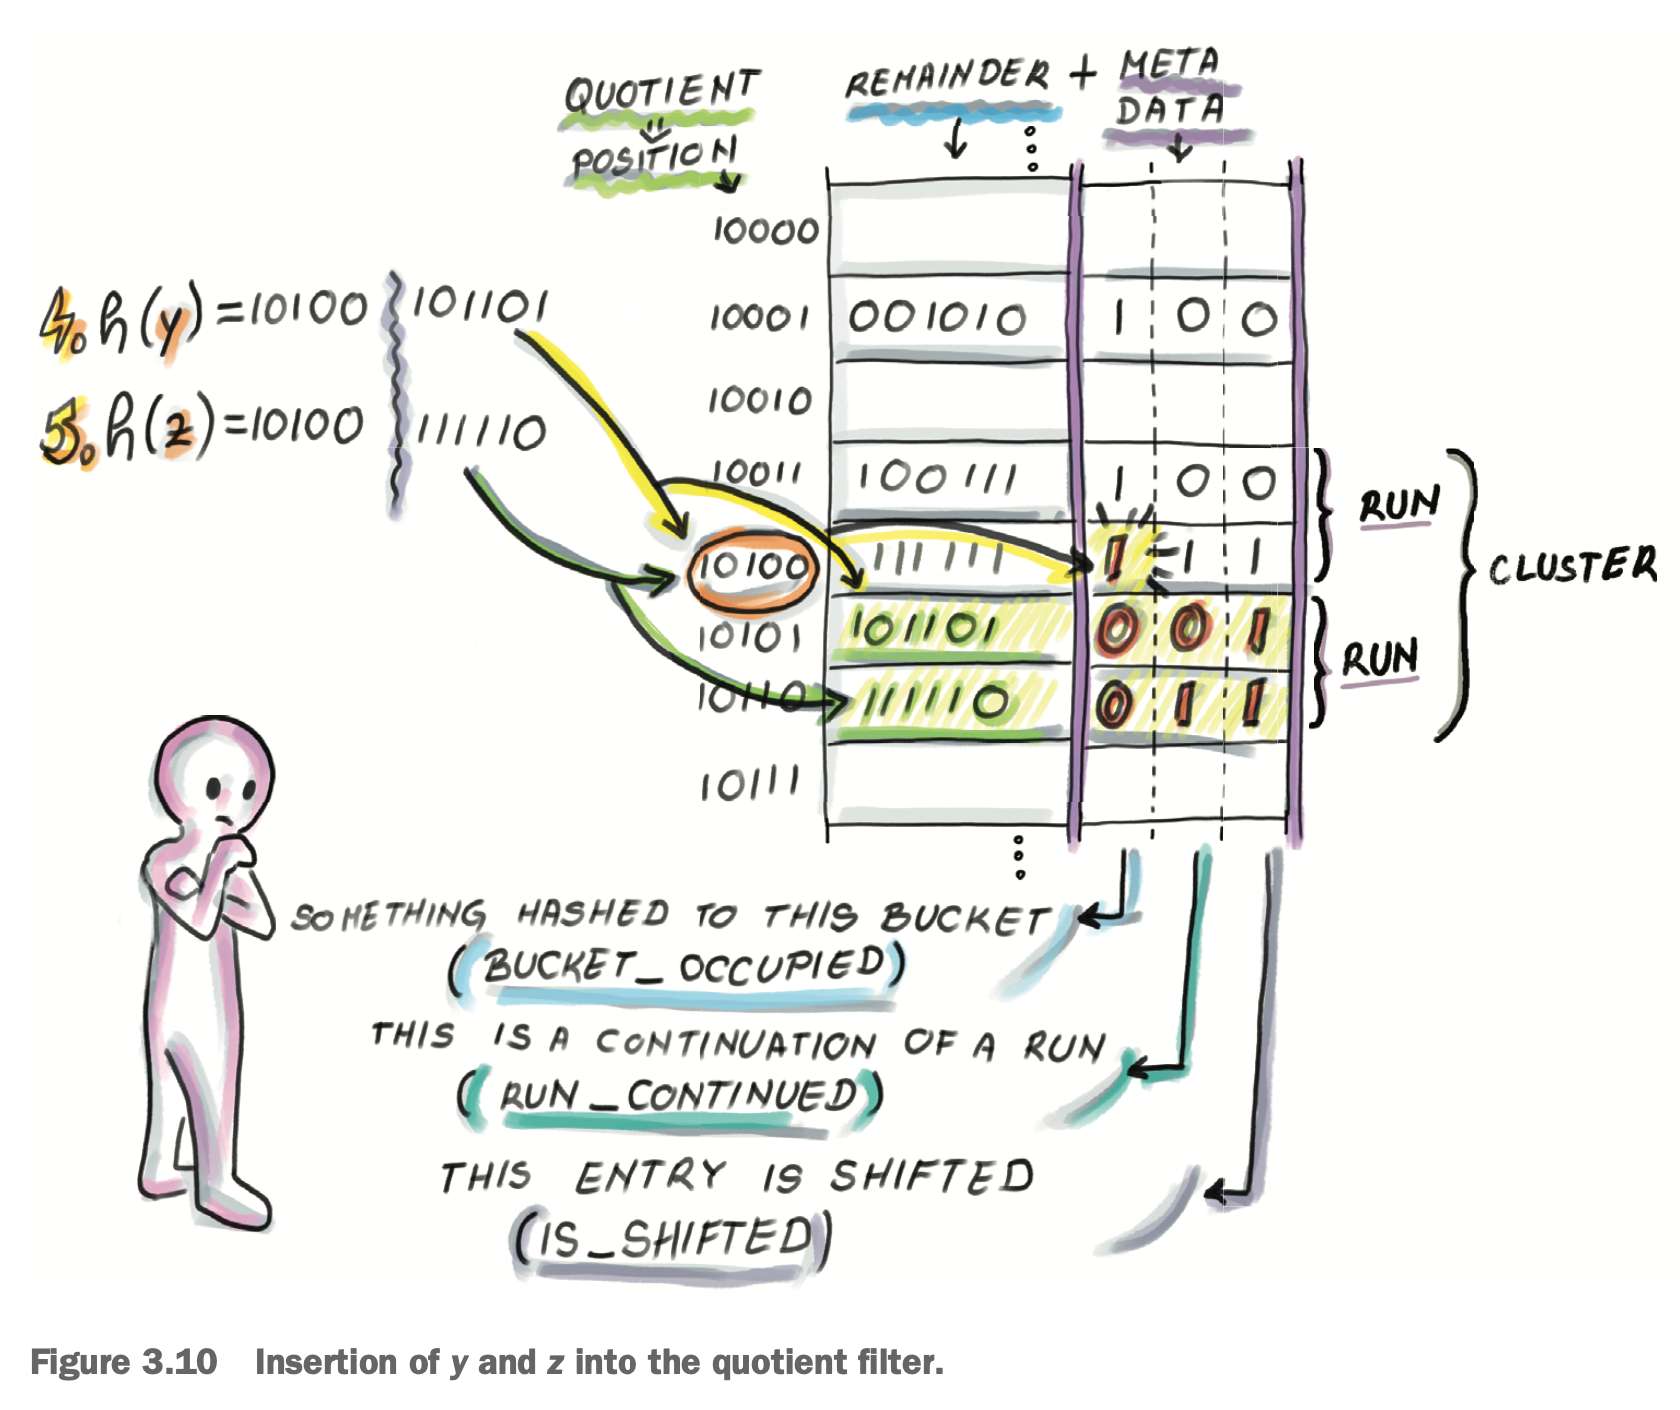 QUOTIENT
POSITION
REMAINDER + META
DATA
10000
4. h(y) = 10100 101101
10001 001010 1 0 0
10010
5. h(z) = 10100 111110
10011 100111 1 0 0
RUN
10100 111111 1 1 1
CLUSTER
10101 101101 0 0 1
RUN
10110 111110 0 1 1
10111
SOMETHING HASHED TO THIS BUCKET
(BUCKET_OCCUPIED)
THIS IS A CONTINUATION OF A RUN
(RUN_CONTINUED)
THIS ENTRY IS SHIFTED
(IS_SHIFTED)
Figure 3.10 Insertion of y and z into the quotient filter.